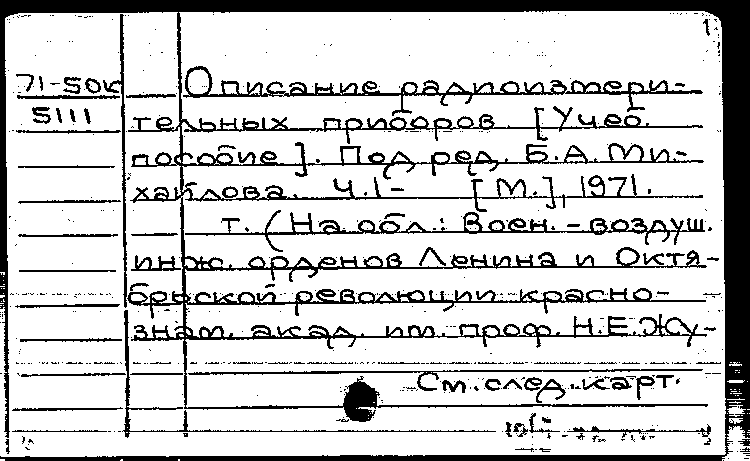 1.
71-50к Описание радиоизмери-
5111 тельных приборов. [Учеб.
пособие]. Под ред. Б.А. Ми-
хайлова. Ч.1- [М.], 1971.
т. (На обл.: Воен.-воздуш.
инж. орденов Ленина и Октя-
брьской революции красно-
знам. акад. им. проф. Н.Е.Жу-
См. след. карт.